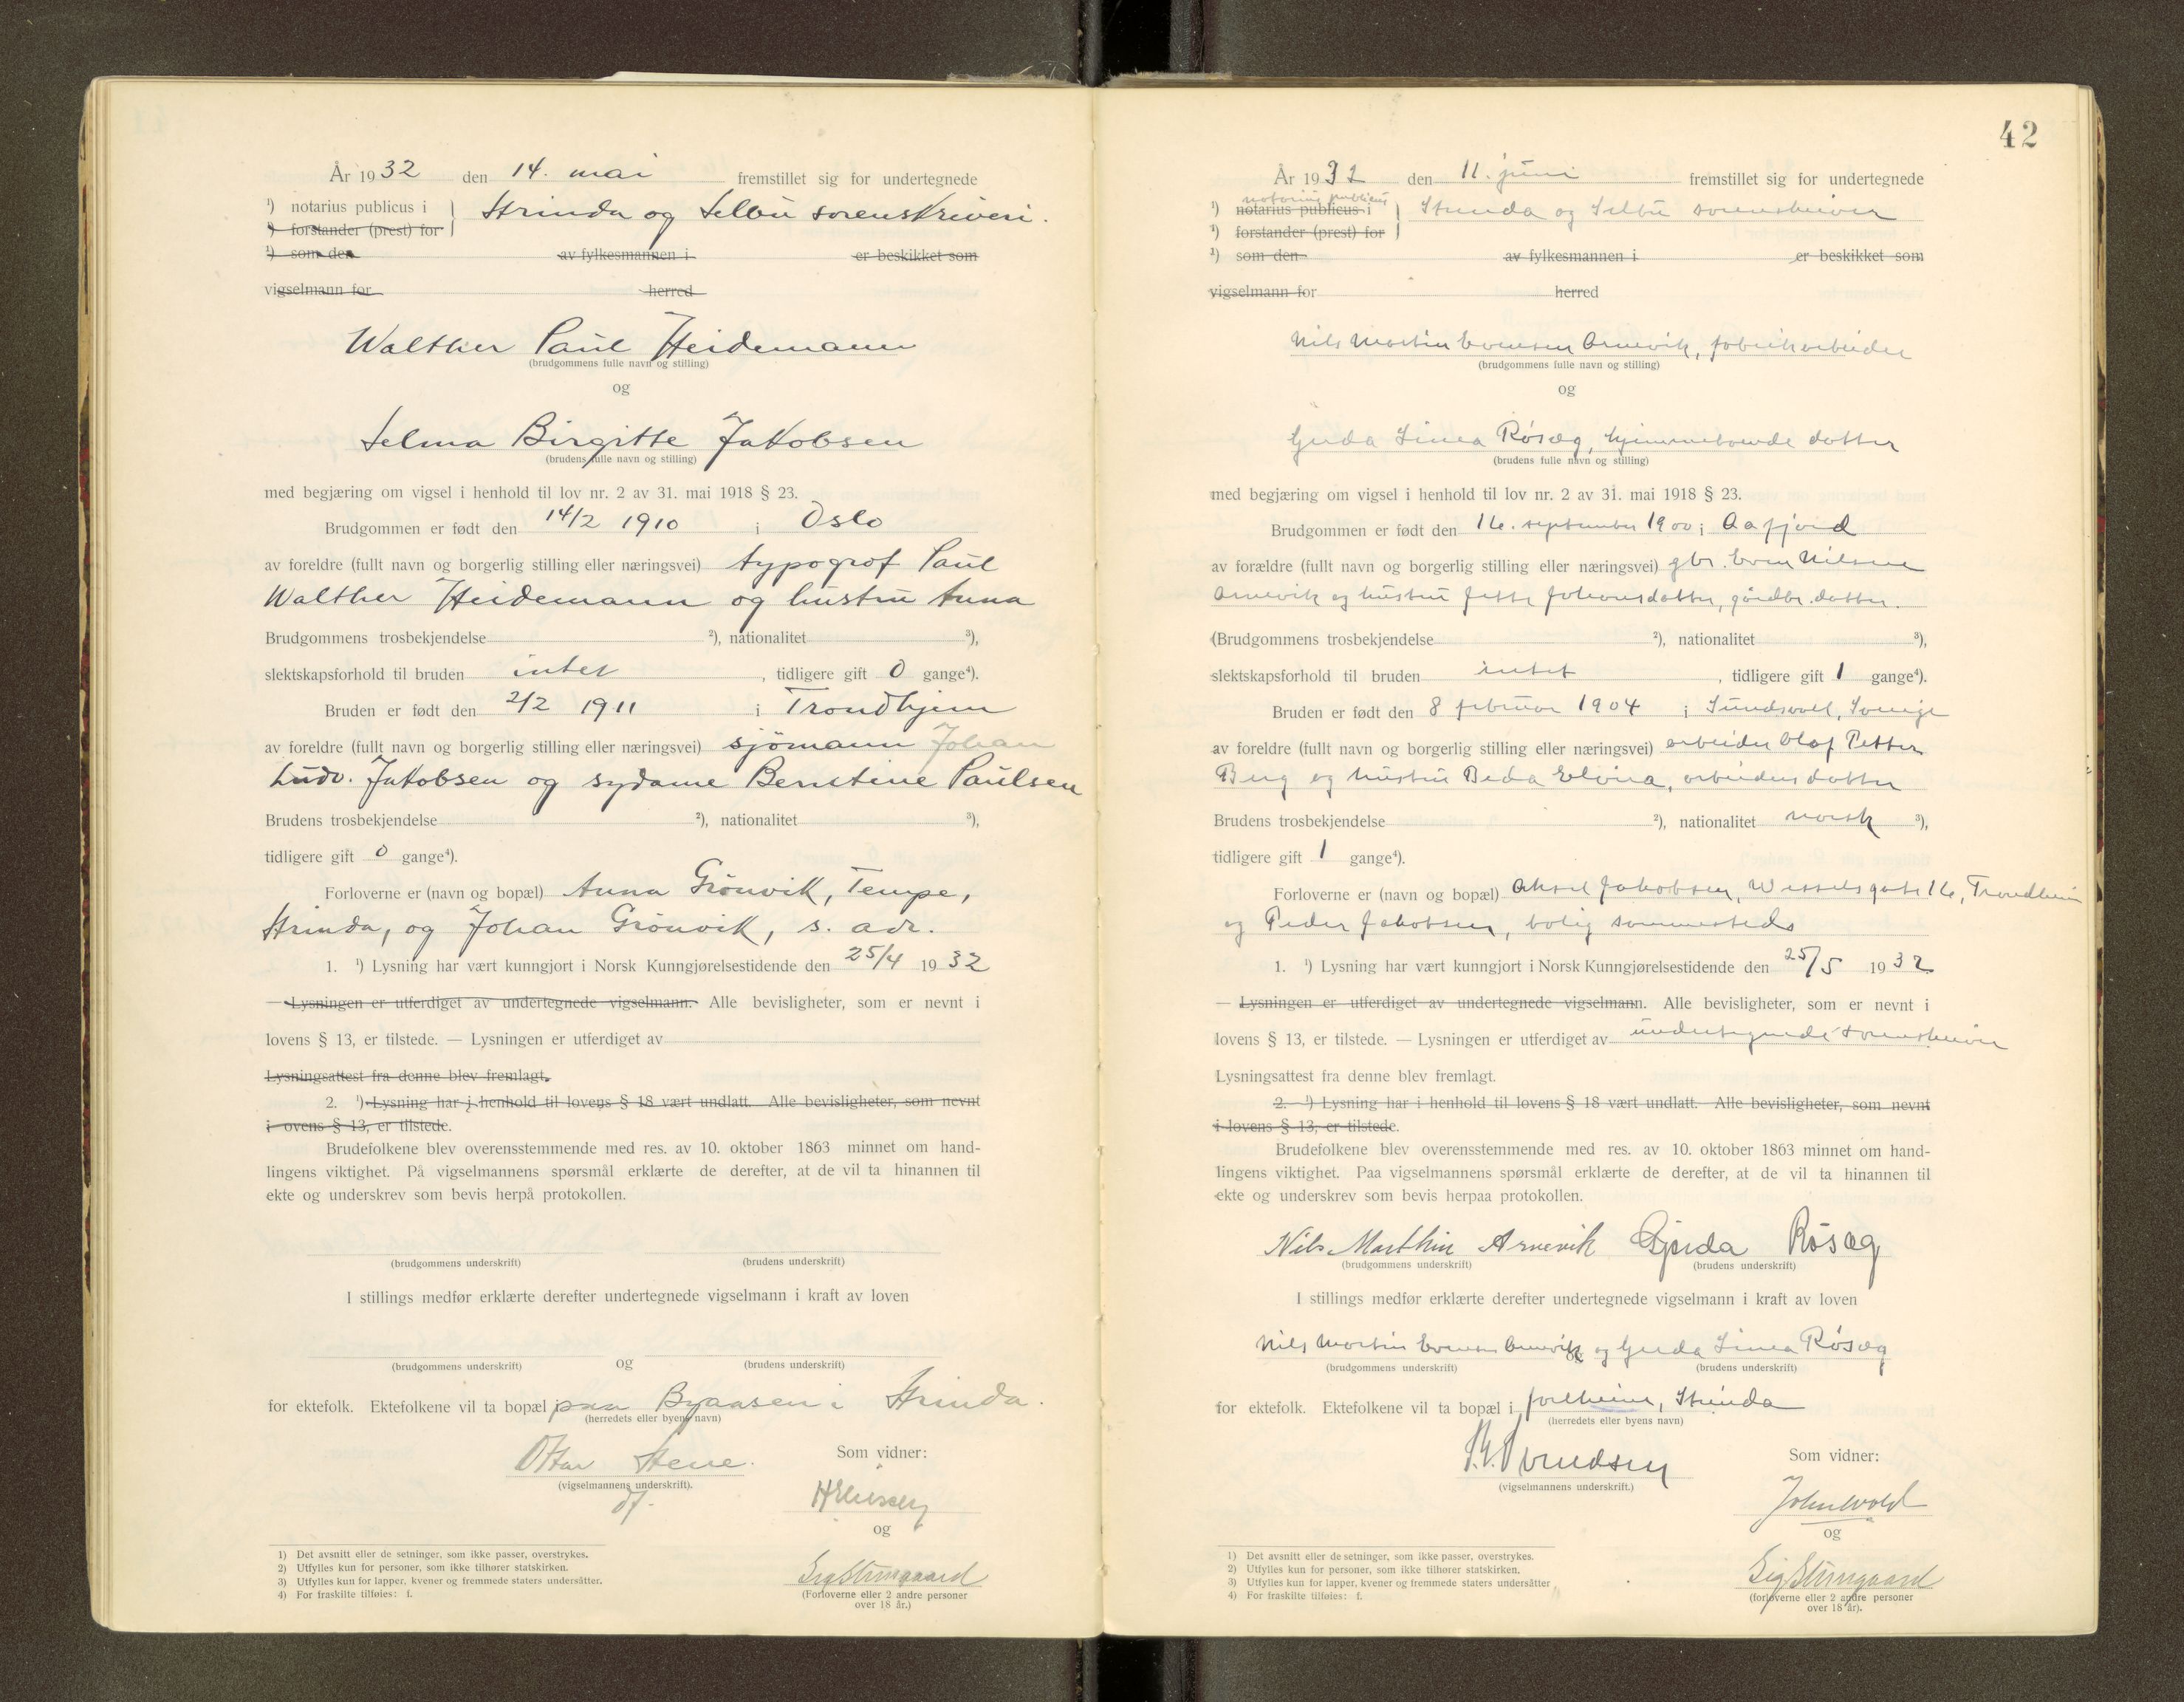 År 1932 den 14. mai fremstillet sig for undertegnede
¹) notarius publicus i } Strinda og Selbu sorenskriveri.
¹) forstander (prest) for
¹) som den av fylkesmannen i er beskikket som
vigselmann for herred
Walther Paul Heidemann
(brudgommens fulle navn og stilling)
og
Selma Birgitte Jakobsen
(brudens fulle navn og stilling)
med begjæring om vigsel i henhold til lov nr. 2 av 31. mai 1918 § 23.
Brudgommen er født den 14/2 1910 i Oslo
av foreldre (fullt navn og borgerlig stilling eller næringsvei) typograf Paul
Walther Heidemann og hustru Anna
Brudgommens trosbekjendelse ²), nationalitet ³),
slektskapsforhold til bruden intet, tidligere gift 0 gange⁴).
Bruden er født den 2/2 1911 i Trondhjem
av foreldre (fullt navn og borgerlig stilling eller næringsvei) sjömann Johan
Ludv. Jakobsen og sydame Berntine Paulsen
Brudens trosbekjendelse ²), nationalitet ³),
tidligere gift 0 gange⁴).
Forloverne er (navn og bopæl) Anna Grönvik, Tempe,
Strinda, og Johan Grönvik, s. adr.
1. ¹) Lysning har vært kunngjort i Norsk Kunngjørelsestidende den 25/4 1932
— Lysningen er utferdiget av undertegnede vigselmann. Alle bevisligheter, som er nevnt i
lovens § 13, er tilstede. — Lysningen er utferdiget av
Lysningsattest fra denne blev fremlagt.
2. ¹) Lysning har i henhold til lovens § 18 vært undlatt. Alle bevisligheter, som nevnt
i ovens § 13, er tilstede.
Brudefolkene blev overensstemmende med res. av 10. oktober 1863 minnet om hand-
lingens viktighet. På vigselmannens spørsmål erklærte de derefter, at de vil ta hinannen til
ekte og underskrev som bevis herpå protokollen.
(brudgommens underskrift) (brudens underskrift)
I stillings medfør erklærte derefter undertegnede vigselmann i kraft av loven
og
(brudgommens underskrift) (brudens underskrift)
for ektefolk. Ektefolkene vil ta bopæl i paa Byaasen i Strinda.
(herredets eller byens navn)
Ottar Stene.
(vigselmannens underskrift).
Som vidner:
og
Sig Stuegaard
(Forloverne eller 2 andre personer
over 18 år.)
1) Det avsnitt eller de setninger, som ikke passer, overstrykes.
2) Utfylles kun for personer, som ikke tilhører statskirken.
3) Utfylles kun for lapper, kvener og fremmede staters undersåtter.
4) For fraskilte tilføies: f.
42
År 1932 den 11. juni fremstillet sig for undertegnede
notarius publicus
¹) notarius publicus i } Strinda og Selbu sorenskriver
¹) forstander (prest) for
¹) som den av fylkesmannen i er beskikket som
vigselmann for herred
Nils Martin Evensen Arnevik, fabrikarbeider
(brudgommens fulle navn og stilling)
og
Gerda Linea Røsæg, hjemmeboende datter
(brudens fulle navn og stilling)
med begjæring om vigsel i henhold til lov nr. 2 av 31. mai 1918 § 23.
Brudgommen er født den 16. september 1900 i Aafjord
av forældre (fullt navn og borgerlig stilling eller næringsvei) gbr. Even Nilsen
Arnevik og hustru Jette Johansdatter, gårdbr. datter.
(Brudgommens trosbekjendelse ²), nationalitet ³),
slektskapsforhold til bruden intet, tidligere gift 1 gange⁴).
Bruden er født den 8 februar 1904 i Sundsvall, Sverige
av foreldre (fullt navn og borgerlig stilling eller næringsvei) arbeider Olaf Petter
Berg og hustru Beda Elvira, arbeidersdatter
Brudens trosbekjendelse ²), nationalitet norsk ³),
tidligere gift 1 gange⁴).
Forloverne er (navn og bopæl) Aksel Jakobsen, Wesselsgate 16, Trondheim
og Peder Jakobsen, bolig sammesteds
1. ¹) Lysning har vært kunngjort i Norsk Kunngjørelsestidende den 25/5 1932
— Lysningen er utferdiget av undertegnede vigselmann. Alle bevisligheter, som er nevnt i
lovens § 13, er tilstede. — Lysningen er utferdiget av undertegnede sorenskriver
Lysningsattest fra denne blev fremlagt.
2. ¹) Lysning har i henhold til lovens § 18 vært undlatt. Alle bevisligheter, som nevnt
i lovens § 13, er tilstede.
Brudefolkene blev overensstemmende med res. av 10. oktober 1863 minnet om hand-
lingens viktighet. Paa vigselmannens spørsmål erklærte de derefter, at de vil ta hinannen til
ekte og underskrev som bevis herpaa protokollen.
Nils Marthin Arnevik Gjerda Røsæg
(brudgommens underskrift) (brudens underskrift)
I stillings medfør erklærte derefter undertegnede vigselmann i kraft av loven
Nils Martin Evensen Arnevik og Gerda Linea Røsæg
(brudgommens underskrift) (brudens underskrift)
for ektefolk. Ektefolkene vil ta bopæl i, Strinda
(herredets eller byens navn)
(vigselmannens underskrift.)
Som vidner:
og
Sig Stuegaard
(forloverne eller 2 andre personer
over 18 år).
1) Det avsnitt eller de setninger, som ikke passer, overstrykes.
2) Utfylles kun for personer, som ikke tilhører statskirken.
3) Utfylles kun for lapper, kvener og fremmede staters undersåtter
4) For fraskilte tilføies: f.